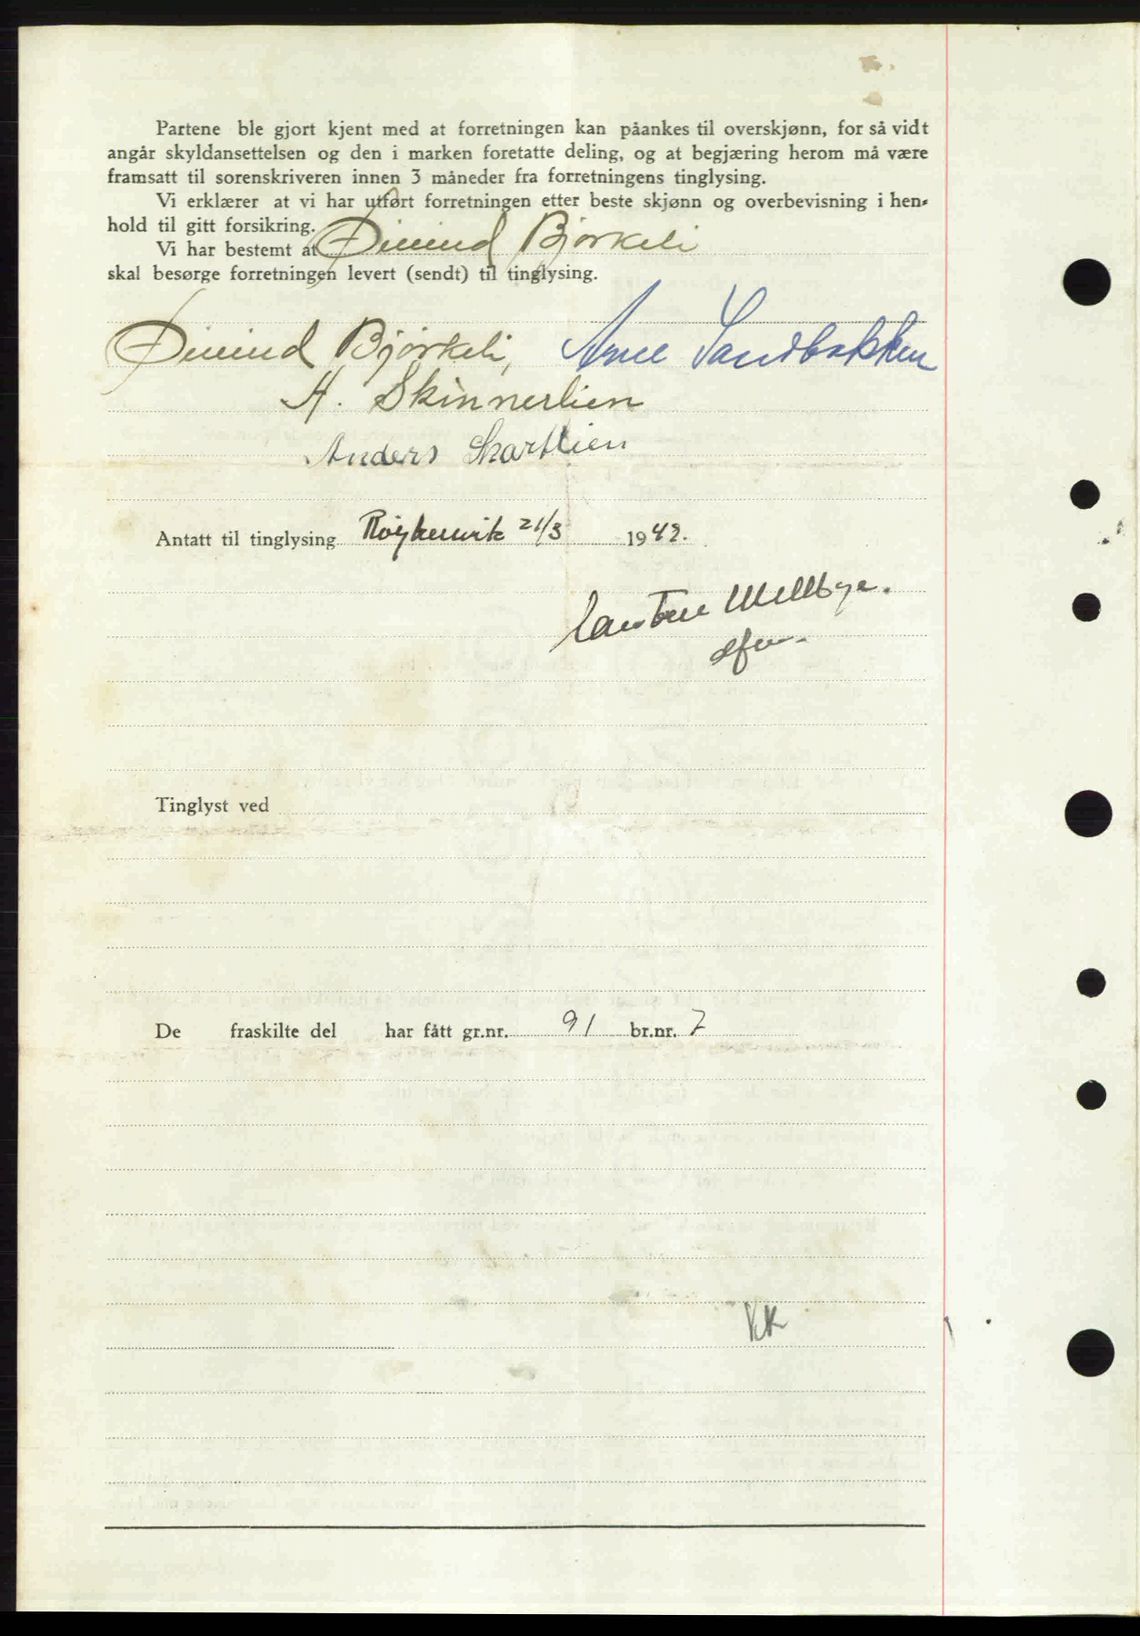 Partene ble gjort kjent med at forretningen kan påankes til overskjønn, for så vidt
angår skyldansettelsen og den i marken foretatte deling, og at begjæring herom må være
framsatt til sorenskriveren innen 3 måneder fra forretningens tinglysing.
Vi erklærer at vi har utført forretningen etter beste skjønn og overbevisning i hen-
hold til gitt forsikring.
Vi har bestemt at Øivind Bjørkeli
skal besørge forretningen levert (sendt) til tinglysing.
Øivind Bjørkeli, Arne Sandbakken
H. Skinnerlien
Anders Skartlien
Antatt til tinglysing Røykenvik 21/3 1942.
Carsten Mellbye.
De fraskilte del har fått gr.nr. 91 br.nr. 7
Tinglyst ved
KK